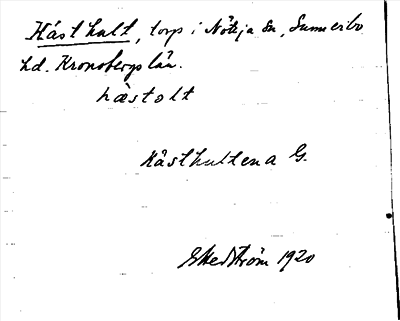 Hästhult, torp i Nöttja sn, Sunnerbo
hd. Kronobergs län.
hæstolt
Hästhultena G.
Ekedström 1920